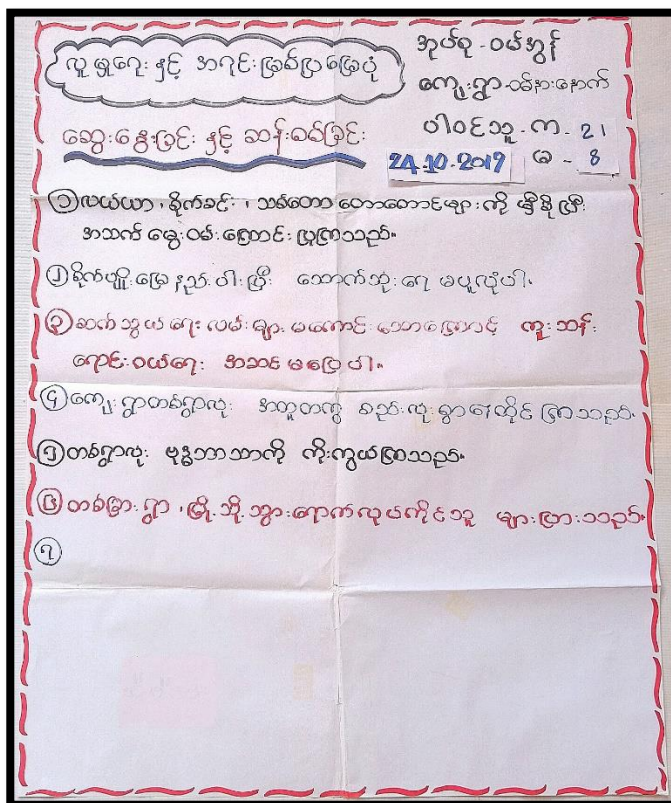 လူမှုရေး နှင့် အရင်းမြစ်ပြမြေပုံ
အုပ်စု - ဝမ်အွန်
ကျေးရွာ - ဝမ်နားနောက်
ဆွေးနွေးခြင်း နှင့် ဆန်းစစ်ခြင်း
ပါဝင်သူ - က - 21
24.10.2019 မ - 8
၁ လယ်ယာ၊ စိုက်ခင်း၊ သစ်တော တောတောင်များ ကို မှီခိုပြီး
အသက် မွေးဝမ်းကြောင်း ပြုကြသည်။
၂ စိုက်ပျိုးမြေ နည်းပါးပြီး သောက်သုံးရေ မပူလုံပါ။
၃ ဆက်သွယ်ရေး လမ်းများ မကောင်းသောကြောင့် ကူးသန်း
ရောင်းဝယ်ရေး အဆင်မပြေပါ။
၄ ကျေးရွာတစ်ရွာလုံး အတူတကွ စည်းလုံးစွာနေထိုင်ကြသည်။
၅ တစ်ရွာလုံး ဗုဒ္ဓဘာသာကို ကိုးကွယ်ကြသည်။
၆ တစ်ခြားရွာ၊ မြို့သို့ သွားရောက်လုပ်ကိုင်သူ များပြားသည်။
၇